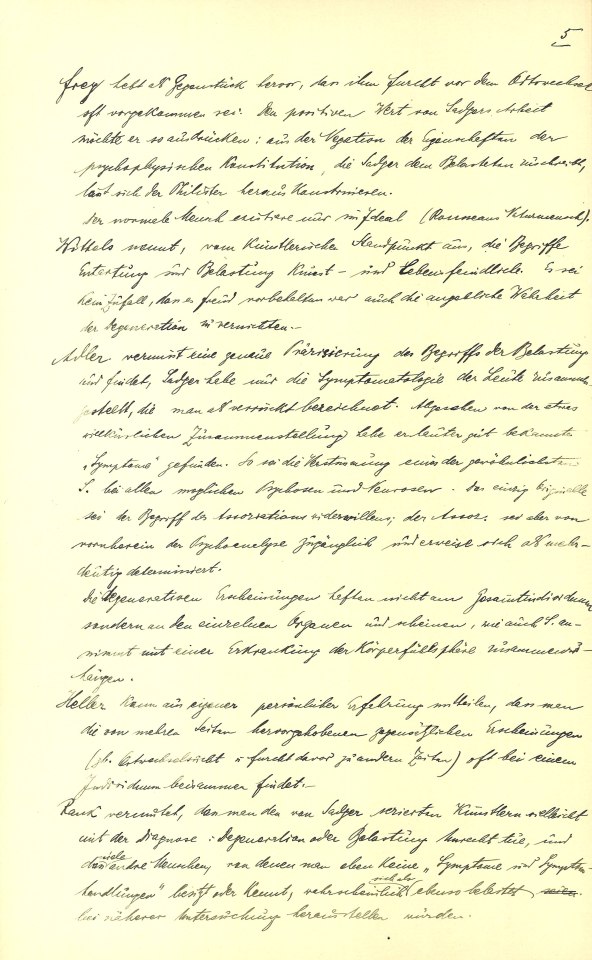 5
Frey hebt als Gegenstück hervor, dass ihm Furcht vor dem Ortswechsel
oft vorgekommen sei. Den positiven Wert von Sadgers Arbeit
möchte er so ausdrücken: aus der Negation der Eigenschaften der
psychophysischen Konstitution, die Sadger dem Belasteten zuschreibt,
lasst sich der Philister heraus konstruieren.
Der normale Mensch existiere nur im Ideal (Rousseaus Naturmensch).
Wittels nennt, vom künstlerischen Standpunkt aus, die Begriffe
Entartung und Belastung Kunst- und Lebensfeindlich. Es sei
kein Zufall, dass es Freud vorbehalten war auch die angebliche Wahrheit
der Degeneration zu vernichten.-
Adler vermisst eine genaue Präzisierung des Begriffs der Belastung
und findet, Sadger habe nur die Symptomatologie der Leute zusammen-
gestellt, die man als verrückt bezeichnet. Abgesehen von der etwas
willkürlichen Zusammenstellung habe er lauter gut bekannte
„Symptome" gefunden. So sei die Verstimmung eines der gewöhnlichsten
S. bei allen möglichen Psychosen und Neurosen. Das einzig Originelle
sei der Begriff des Assoziationswiderwillens; der Assoz. sei aber von
vornherein der Psychoanalyse zugänglich und erweise sich als mehr-
deutig determiniert.
Die degenerativen Erscheinungen haften nicht am Gesamtindividuum
sondern an den einzelnen Organen und scheinen, wie auch S. an-
nimmt mit einer Erkrankung der Körperfühlsphäre zusammenzu-
hängen.
Heller kann aus eigener persönlicher Erfahrung mitteilen, dass man
die von mehren Seiten hervorgehobenen gegensätzlichen Erscheinungen
(z.b. Ortswechselsucht u Furcht davor zu andern Zeiten) oft bei einem
Individuum beisammen findet.-
Rank vermutet, dass man den von Sadger sezierten Künstlern vielleicht
mit der Diagnose: Degeneration oder Belastung Unrecht tue, und
dass viele andre Menschen, von denen man eben keine „Symptome und Symptom-
handlungen" besitzt oder kennt, wahrscheinlich sich als ebenso belastet
bei näherer Untersuchung herausstellen würden.